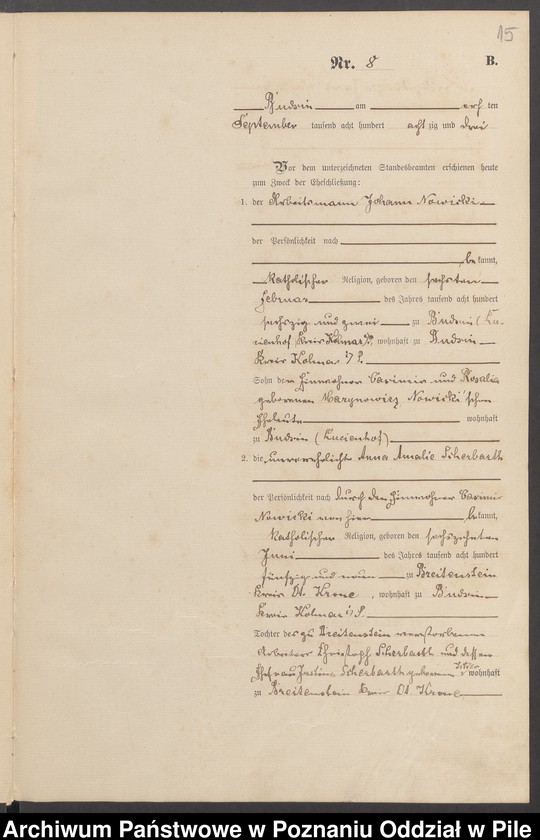 15
Nr. 8 B.
Budsin am acht ten
September tausend acht hundert acht zig und drei
Vor dem unterzeichneten Standesbeamten erschienen heute
zum Zweck der Eheschließung:
1. der Arbeitsmann Johann Nowicki
der Persönlichkeit nach
be kannt,
katholischer Religion, geboren den sechsten
Februar des Jahres tausend acht hundert
sechszig und zwei zu Budsin (Lu-
cienhof) Kreis Kolmar i/P., wohnhaft zu Budsin
Kreis Kolmar i/P.
Sohn der Einwohner Casimir und Rosalie
geborenen Marynowicz Nowicki'schen
Eheleute wohnhaft
zu Budsin (Lucienhof)
2. die unverehelichte Anna Amalie Scherbarth
der Persönlichkeit nach durch den Einwohner Casimir
Nowicki von hier be kannt,
katholischer Religion, geboren den sechszehnten
Juni des Jahres tausend acht hundert
fünfzig und neun zu Breitenstein
Kreis Dt. Krone, wohnhaft zu Budsin
Kreis Kolmar i/P.
Tochter des zu Breitenstein verstorbenen
Arbeiters Christoph Scherbarth und dessen
Ehefrau Justine Scherbarth geborenen wohnhaft
zu Breitenstein Kreis Dt. Krone
Archiwum Państwowe w Poznaniu Oddział w Pile